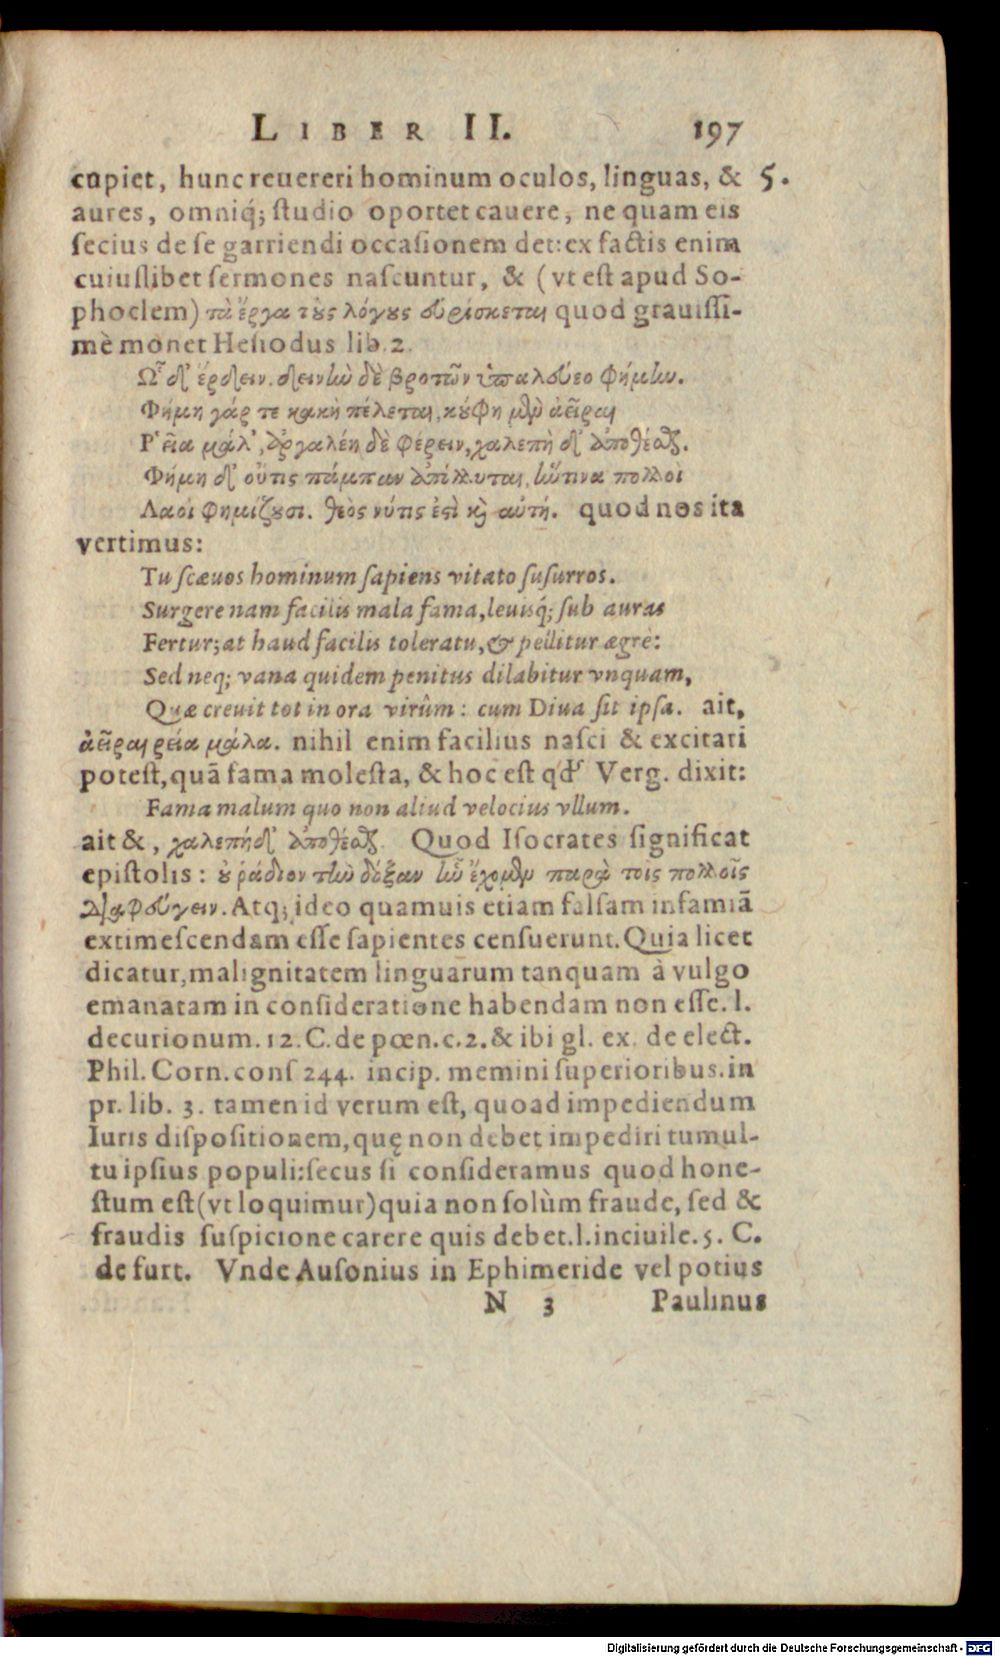 LIBER II. 197
cupiet, hunc reuereri hominum oculos, linguas, & 5.
aures, omniq́; ſtudio oportet cauere, ne quam eis
ſecius de ſe garriendi occaſionem det: ex factis enim
cuiuſlibet ſermones naſcuntur, & (vt eſt apud So-
phoclem) τὰ ἔργα τὺς λόγυς εὑρίσκεται quod grauiſſi-
mè monet Heſiodus lib. 2.
Ὧδ' ἔρδειν. δεινὴν δὲ βροτῶν ὑπαλεύεο φήμην.
Φήμη γάρ τε κακὴ πέλεται, κύφη μὲν ἀεῖραι
Ῥεῖα μάλ', ἀργαλέη δὲ φέρειν, χαλεπὴ δ' ἀποθέσθαι.
Φήμη δ' οὔτις πάμπαν ἀπόλλυται, ἥντινα πολλοὶ
Λαοὶ φημίζουσι. θεὸς νύτις ἐστὶ καὶ αὐτή. quod nos ita
vertimus:
Tu ſcæuos hominum ſapiens vitato ſuſurros.
Surgere nam facilis mala fama, leuisq́; ſub auras
Fertur; at haud facilis toleratu, & pellitur ægrè:
Sed neq; vana quidem penitus dilabitur vnquam,
Quæ creuit tot in ora virûm: cum Diua ſit ipſa. ait,
ἀεῖραι ῥεία μάλα. nihil enim facilius naſci & excitari
poteſt, quā fama moleſta, & hoc eſt qđ Verg. dixit:
Fama malum quo non aliud velocius vllum.
ait &, χαλεπή δ' ἀποθέσθαι. Quod Iſocrates ſignificat
epiſtolis: ὐ ῥάδιον τὴν δόξαν ἣν ἔχομεν παρὰ τοις πολλοῖς
διαφεύγειν. Atq; ideo quamuis etiam falſam infamiā
extimeſcendam eſſe ſapientes cenſuerunt. Quia licet
dicatur, malignitatem linguarum tanquam à vulgo
emanatam in conſideratione habendam non eſſe. l.
decurionum. 12. C. de pœn. c. 2. & ibi gl. ex. de elect.
Phil. Corn. conſ 244. incip. memini ſuperioribus. in
pr. lib. 3. tamen id verum eſt, quoad impediendum
Iuris diſpoſitionem, quę non debet impediri tumul-
tu ipſius populi: ſecus ſi conſideramus quod hone-
ſtum eſt (vt loquimur) quia non ſolùm fraude, ſed &
fraudis ſuſpicione carere quis debet. l. inciuile. 5. C.
de furt. Vnde Auſonius in Ephimeride vel potius
N 3 Paulinus
Digitalisierung gefördert durch die Deutsche Forschungsgemeinschaft - DFG